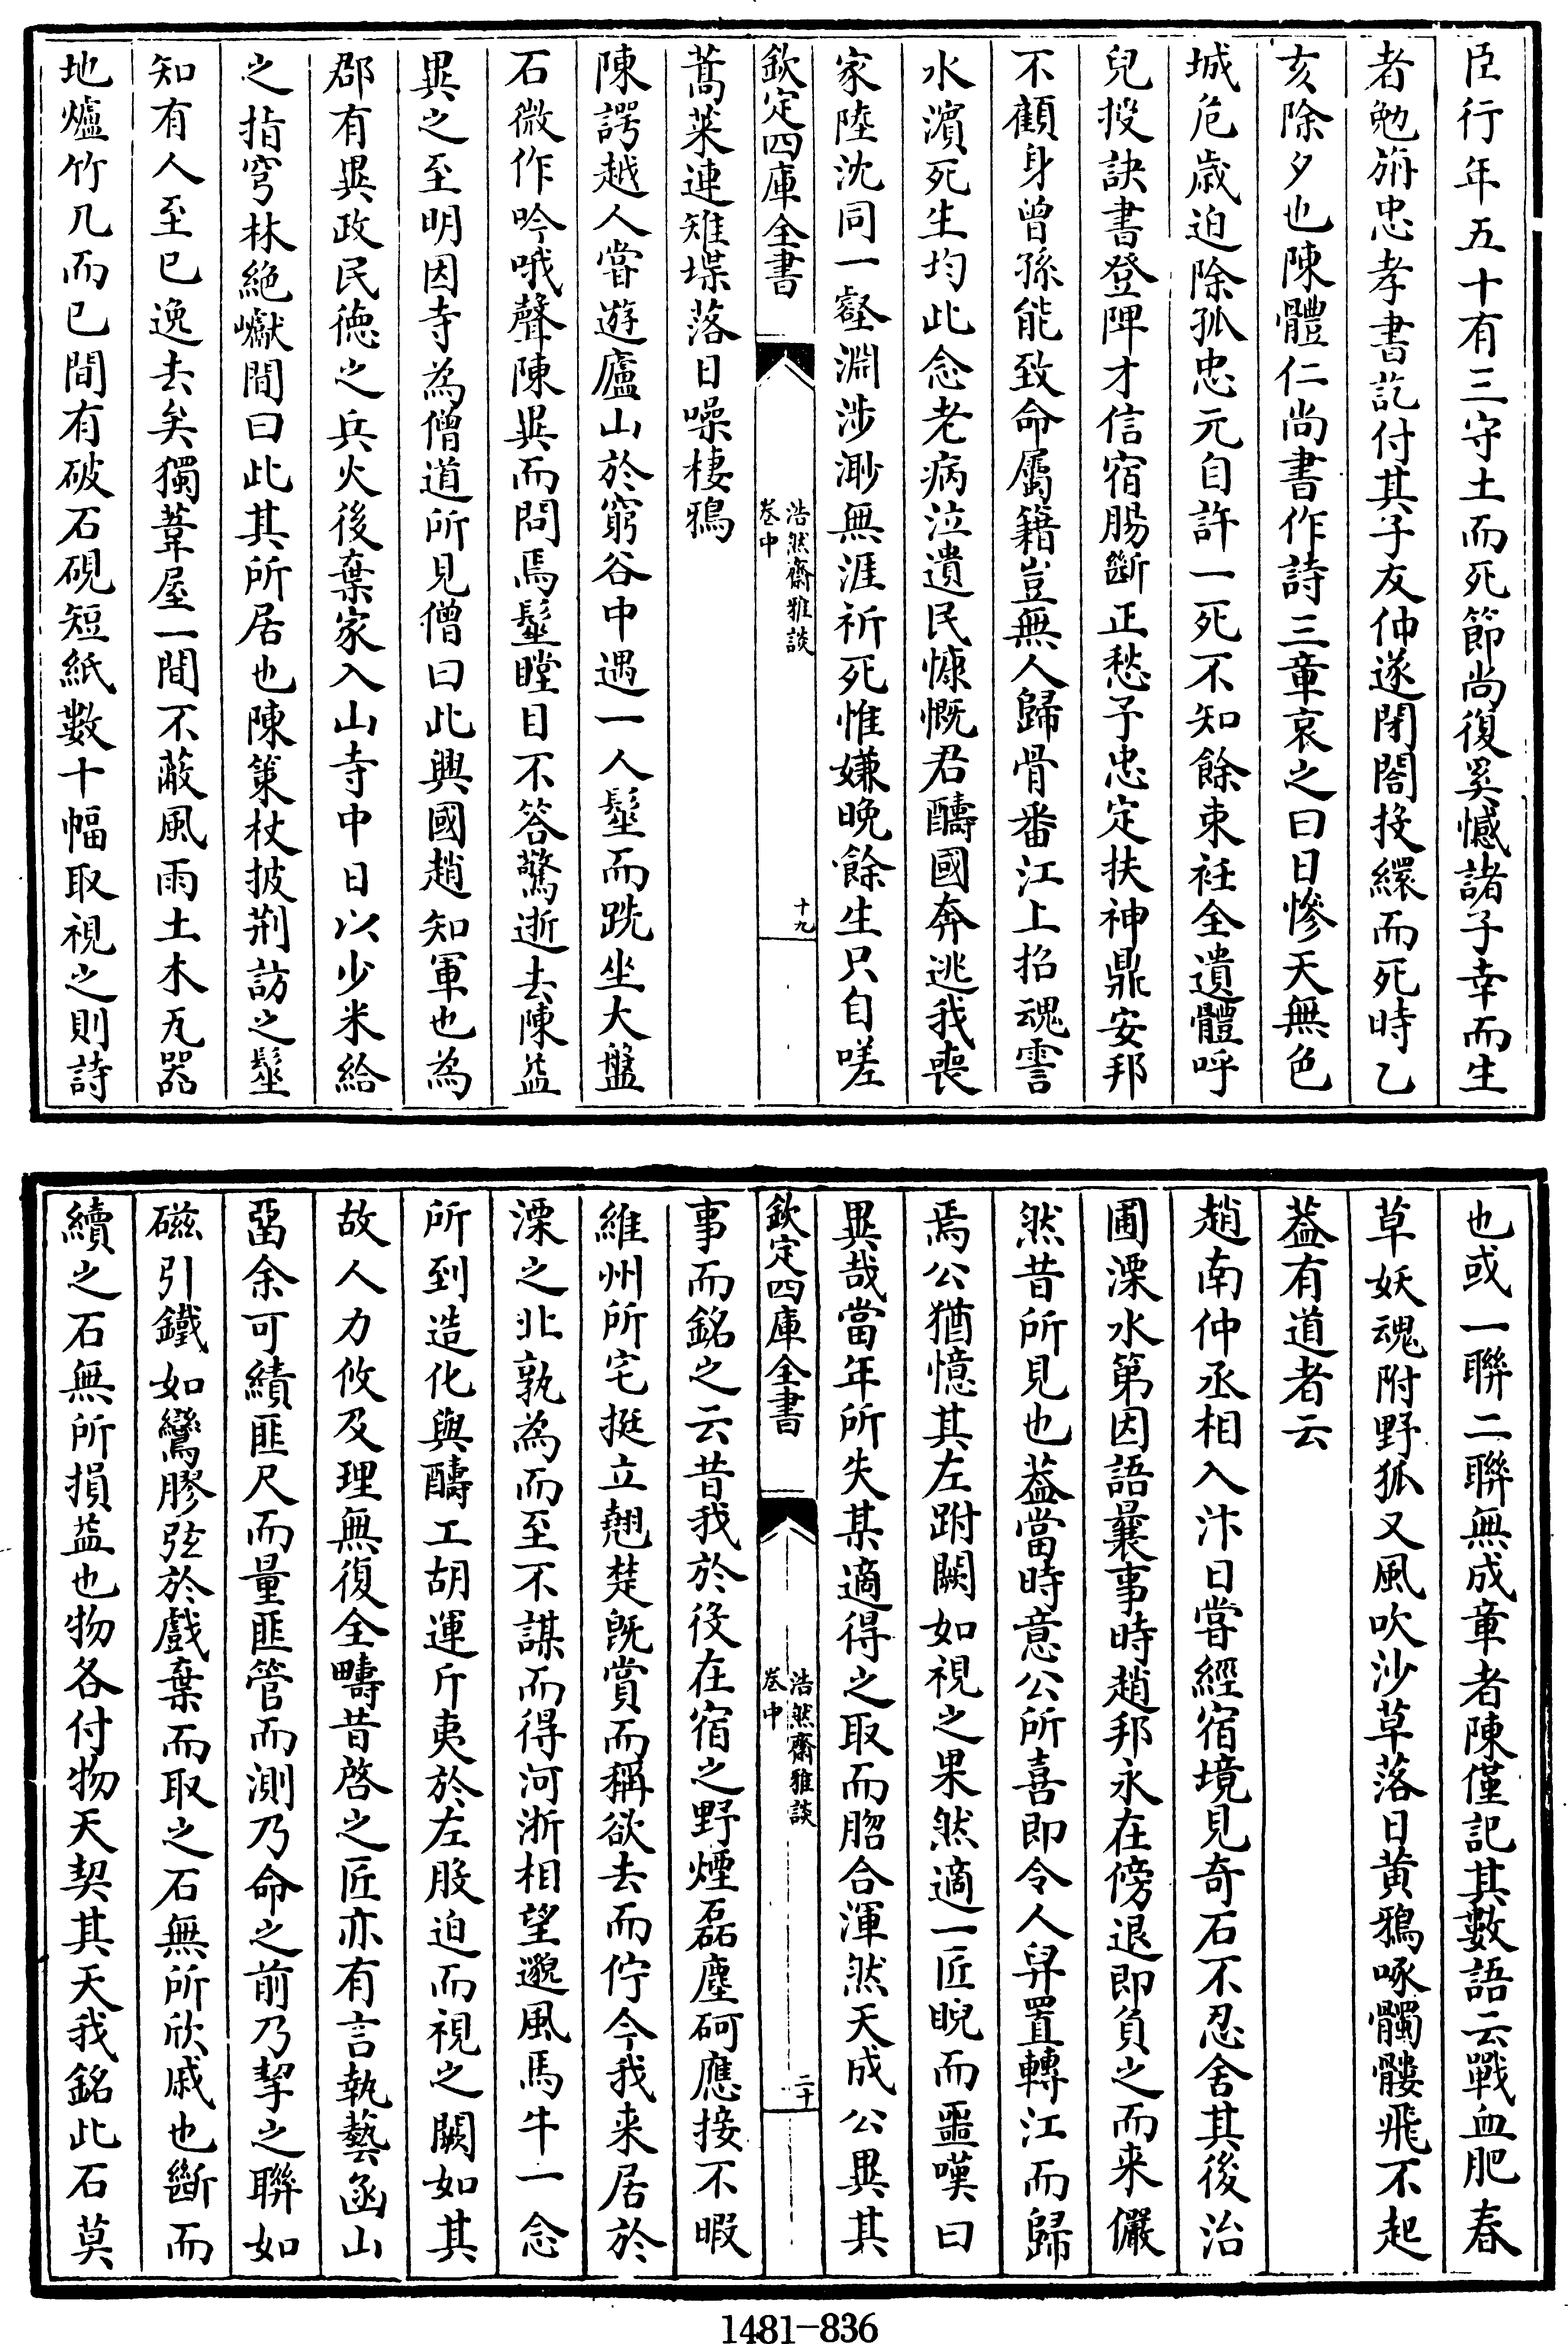 臣行年五十有三守土而死節尚復奚憾諸子幸而生
者勉旃忠孝書訖付其子友仲遂閉閤投繯而死時乙
亥除夕也陳體仁尚書作詩三章哀之曰日慘天無色
城危歲迫除孤忠元自許一死不知餘束衽全遺體呼
兒投訣書登陴才信宿腸斷正愁予忠定扶神鼎安邦
不顧身曾孫能致命屬籍豈無人歸骨番江上招魂雪
水濱死生均此念老病泣遺民慷慨君酬國奔逃我喪
家陸沈同一壑淵涉渺無涯祈死惟嫌晚餘生只自嗟
欽定四庫全書
浩然齋雅談
卷中
十九
蒿萊連雉堞落日噪棲鴉
陳諤越人嘗遊廬山於窮谷中遇一人髽而跣坐大盤
石微作吟哦聲陳異而問焉髽瞠目不答驚逝去陳益
異之至明因寺為僧道所見僧曰此興國趙知軍也為
郡有異政民德之兵火後棄家入山寺中日以少米給
之指穹林絶巘間曰此其所居也陳策杖披荆訪之髽
知有人至已逸去矣獨葦屋一間不蔽風雨土木瓦器
地爐竹几而已間有破石硯短紙數十幅取視之則詩
也或一聯二聯無成章者陳僅記其數語云戰血肥春
草妖魂附野狐又風吹沙草落日黄鴉啄髑髏飛不起
葢有道者云
趙南仲丞相入汴日嘗經宿境見奇石不忍舍其後治
圃溧水第因語曩事時趙邦永在傍退即負之而来儼
然昔所見也葢當時意公所喜即令人舁置轉江而歸
焉公猶憶其左跗闕如視之果然適一匠睨而噩嘆曰
異哉當年所失某適得之取而脗合渾然天成公異其
欽定四庫全書
浩然齋雅談
卷中
二十
事而銘之云昔我於役在宿之野煙磊塵砢應接不暇
維州所宅挺立翹楚旣賞而稱欲去而佇今我来居於
溧之北孰為而至不謀而得河浙相望邈風馬牛一念
所到造化與酬工胡運斤夷於左股迫而視之闕如其
故人力攸及理無復全疇昔啓之匠亦有言執藝函山
畱余可績匪尺而量匪管而測乃命之前乃挈之聯如
磁引鐵如鸞膠弦於戲棄而取之石無所欣戚也斷而
續之石無所損益也物各付物天契其天我銘此石莫
1481-836